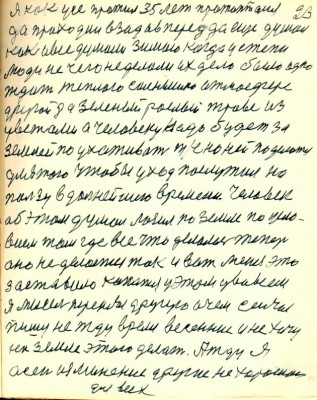 23
Я как усе прожил 35 лет протоптался
да проходил взад вперед да еще думал
как и все думали зимою когда у степи
люди не чего не делали их дело было одно
ждать теплого солнышко атмосфере
другой да зеленый травы из
цветами а человеку надо будет за
землей поухаживать на ней поделать
для того чтобы уход получил на
пользу в дальнейшего времени. Человек
об этом думал лазил по земле по
там где все что делалось теперь
оно не делается так и вот меня это
заставило у этом
Я мысел другую о чем сейчас
пишу не жду время весенние и не хочу
на земле этого делать. А жду я
осень изменение другие не хорошие
для всех